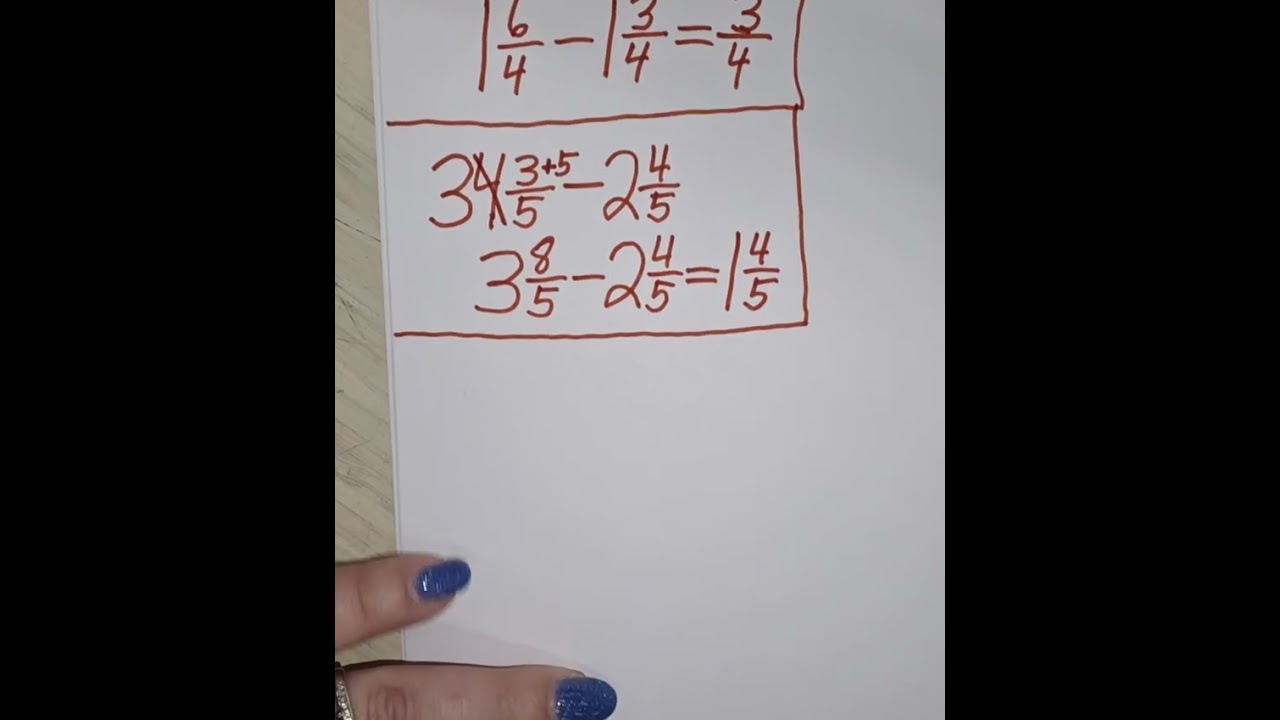 1 6/4 - 1 3/4 = 3/4
3 4 3+5/5 - 2 4/5
3 8/5 - 2 4/5 = 1 4/5